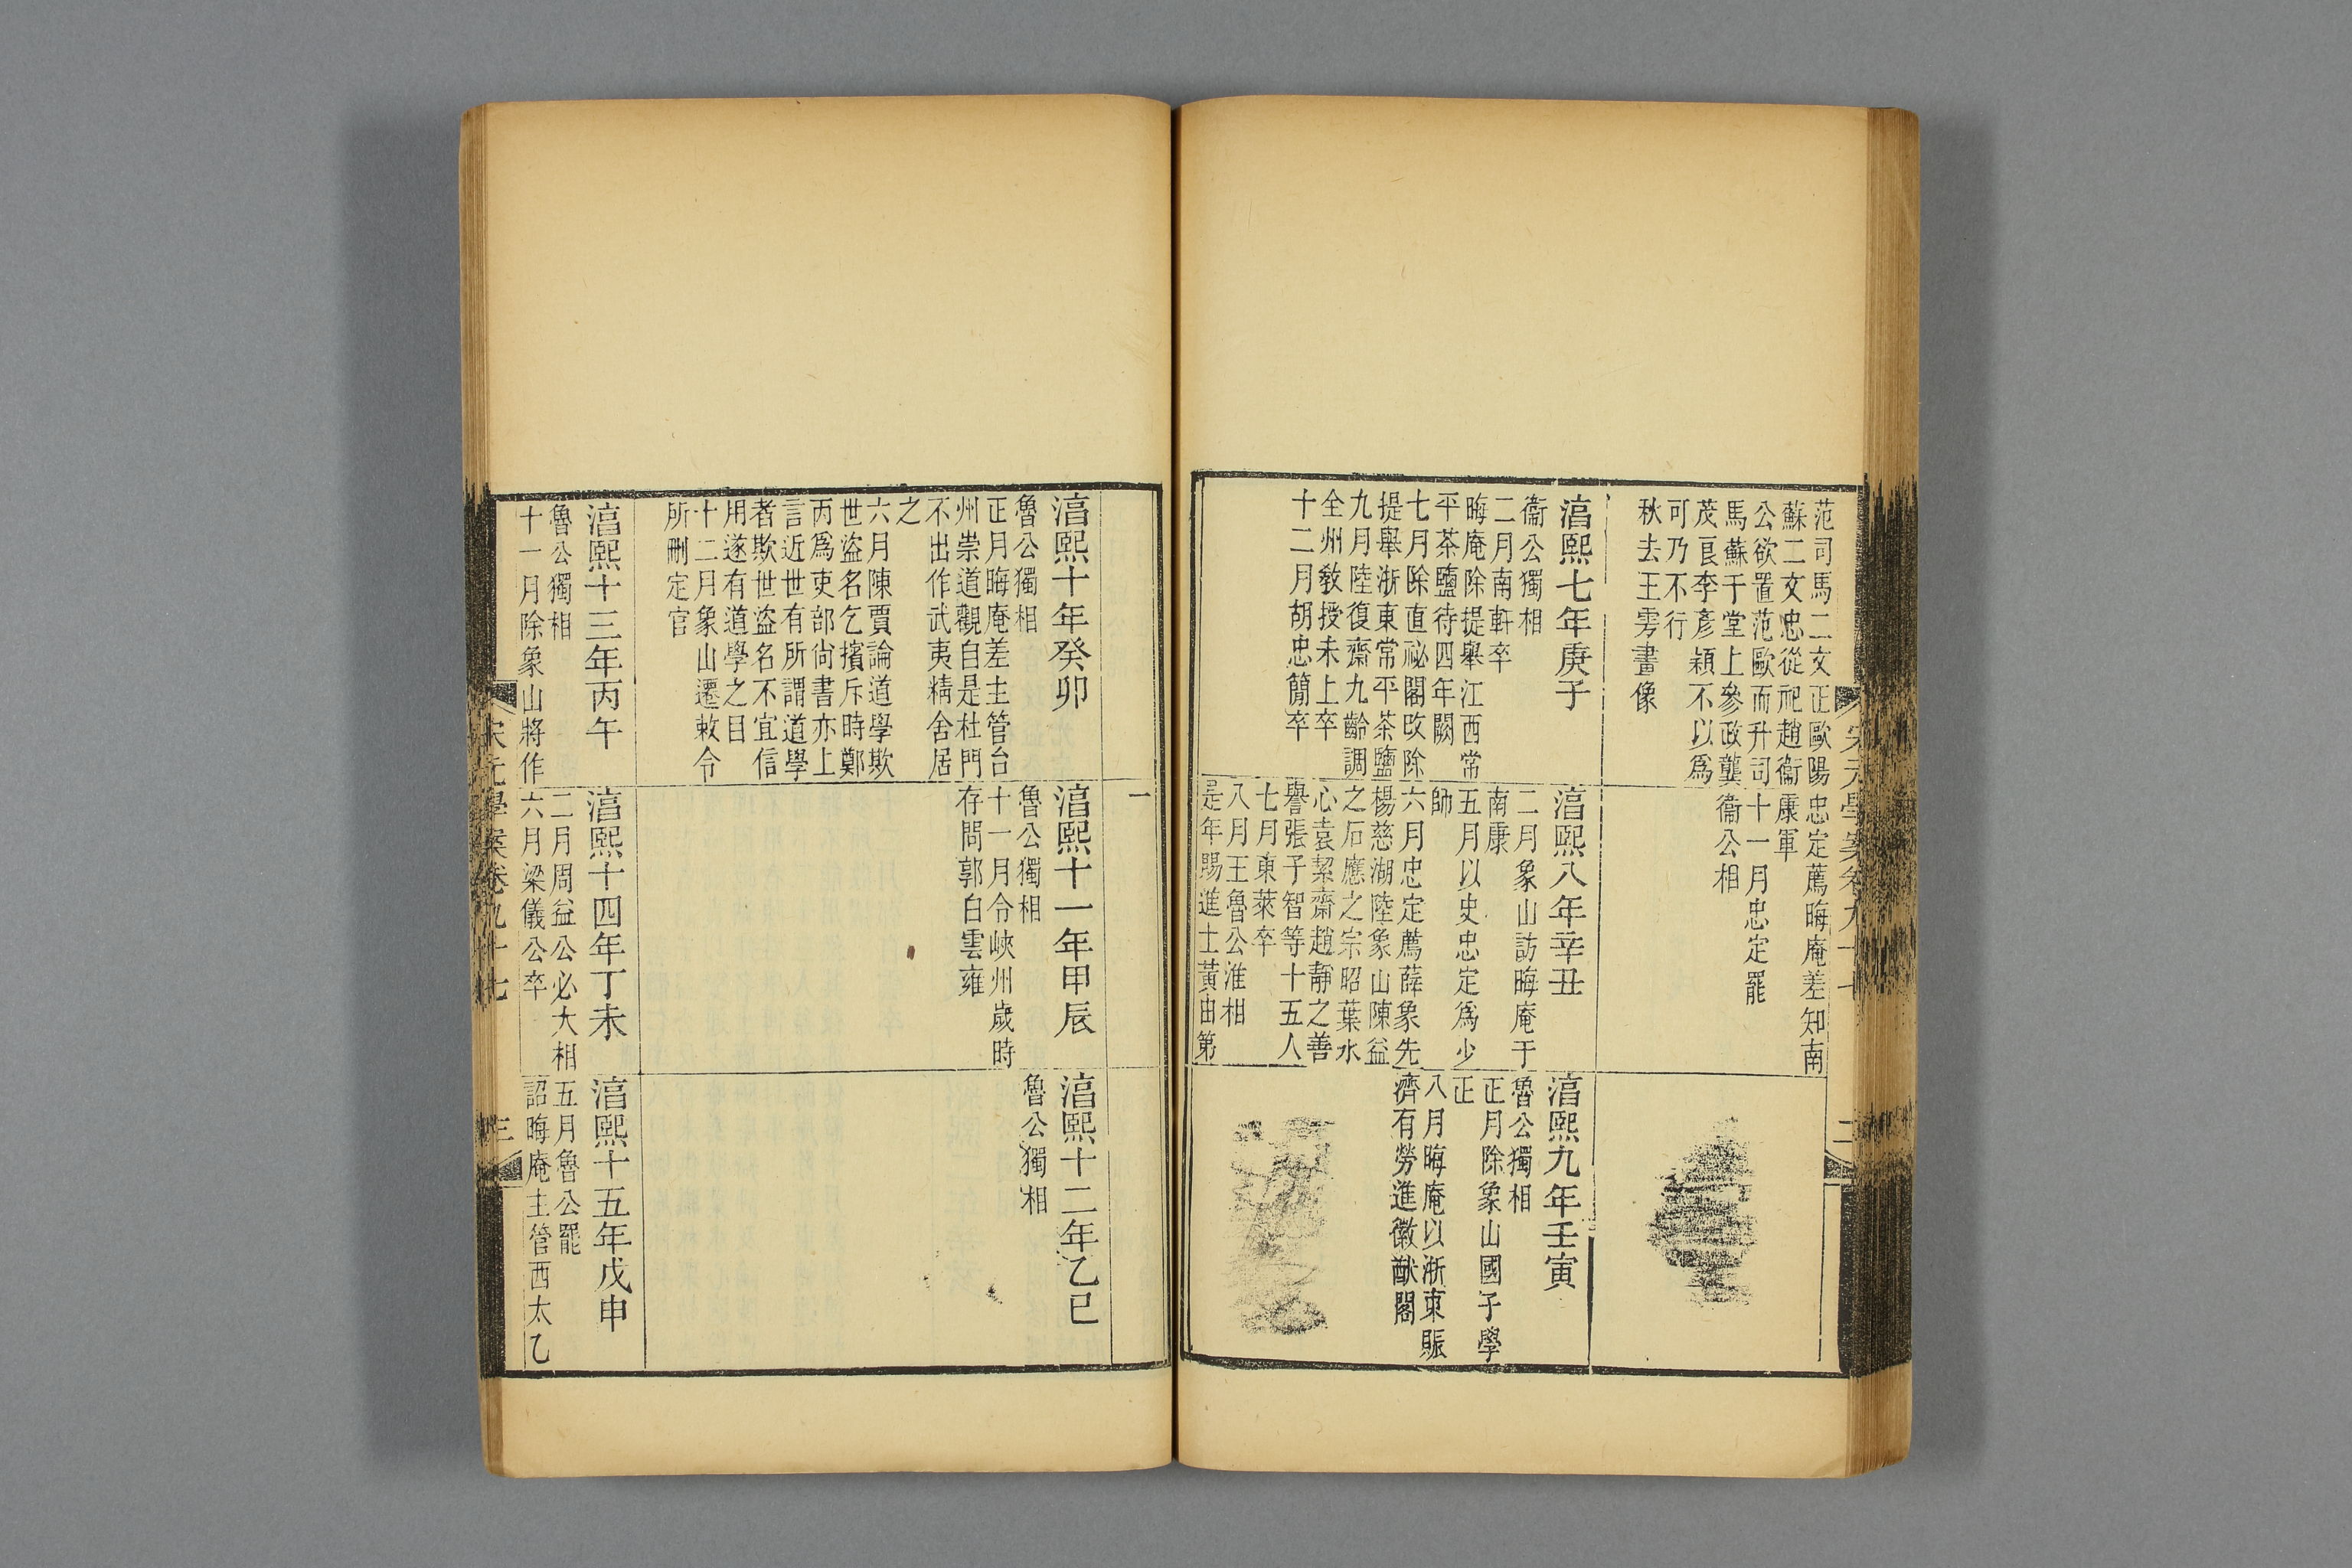 范司馬二文正歐陽
蘇二文忠從祀趙衞
公欲置范歐而升司
馬蘇于堂上參政龔
茂良李彥穎不以爲
可乃不行
秋去王雱畫像
忠定薦晦庵差知南
康軍
十一月忠定罷
衞公相
湻熙七年庚子
衞公獨相
二月南軒卒
晦庵除提舉江西常
平茶鹽待四年闕
七月除直祕閣改除
提舉浙東常平茶鹽
九月陸復齋九齡調
全州敎授未上卒
十二月胡忠簡卒
湻熙八年辛丑
二月象山訪晦庵于
南康
五月以史忠定爲少
師
六月忠定薦薛象先
楊慈湖陸象山陳益
之石應之宗昭葉水
心袁絜齋趙靜之善
譽張子智等十五人
七月東萊卒
八月王魯公淮相
是年賜進士黃由第
湻熙九年壬寅
魯公獨相
正月除象山國子學
正
八月晦庵以浙東賑
濟有勞進徽猷閣
宋元學案卷九十七
二
一
湻熙十年癸卯
魯公獨相
正月晦庵差主管台
州崇道觀自是杜門
不出作武夷精舍居
之
六月陳賈論道學欺
世盜名乞擯斥時鄭
丙爲吏部尙書亦上
言近世有所謂道學
者欺世盜名不宜信
用遂有道學之目
十二月象山遷敕令
所刪定官
湻熙十一年甲辰
魯公獨相
十一月令峽州歲時
存問郭白雲雍
湻熙十二年乙巳
魯公獨相
湻熙十三年丙午
魯公獨相
十一月除象山將作
湻熙十四年丁未
二月周益公必大相
六月梁儀公卒
湻熙十五年戊申
五月魯公罷
詔晦庵主管西太乙
宋元學案卷九十七
三